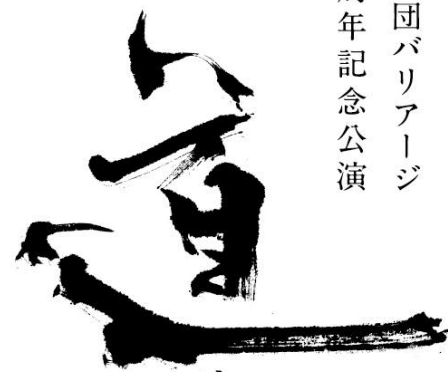 団バリアージ
周年記念公演
道